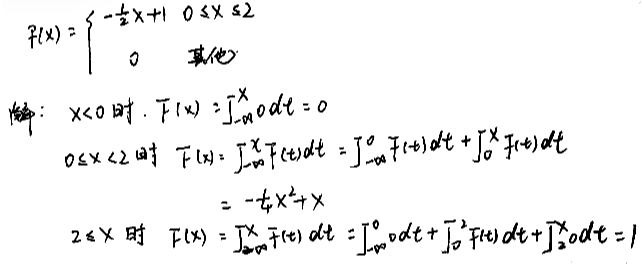 f(x) = { -1/2x+1 0≤x≤2
0 其他
解: x<0时. F(x) = ∫_{-∞}^{x} 0dt = 0
0≤x<2时 F(x) = ∫_{-∞}^{x} f(t)dt = ∫_{-∞}^{0} f(t)dt + ∫_{0}^{x} f(t)dt
= -1/4x²+x
2≤x 时 F(x) = ∫_{-∞}^{x} f(t)dt = ∫_{-∞}^{0} 0dt + ∫_{0}^{2} f(t)dt + ∫_{2}^{x} 0dt = 1